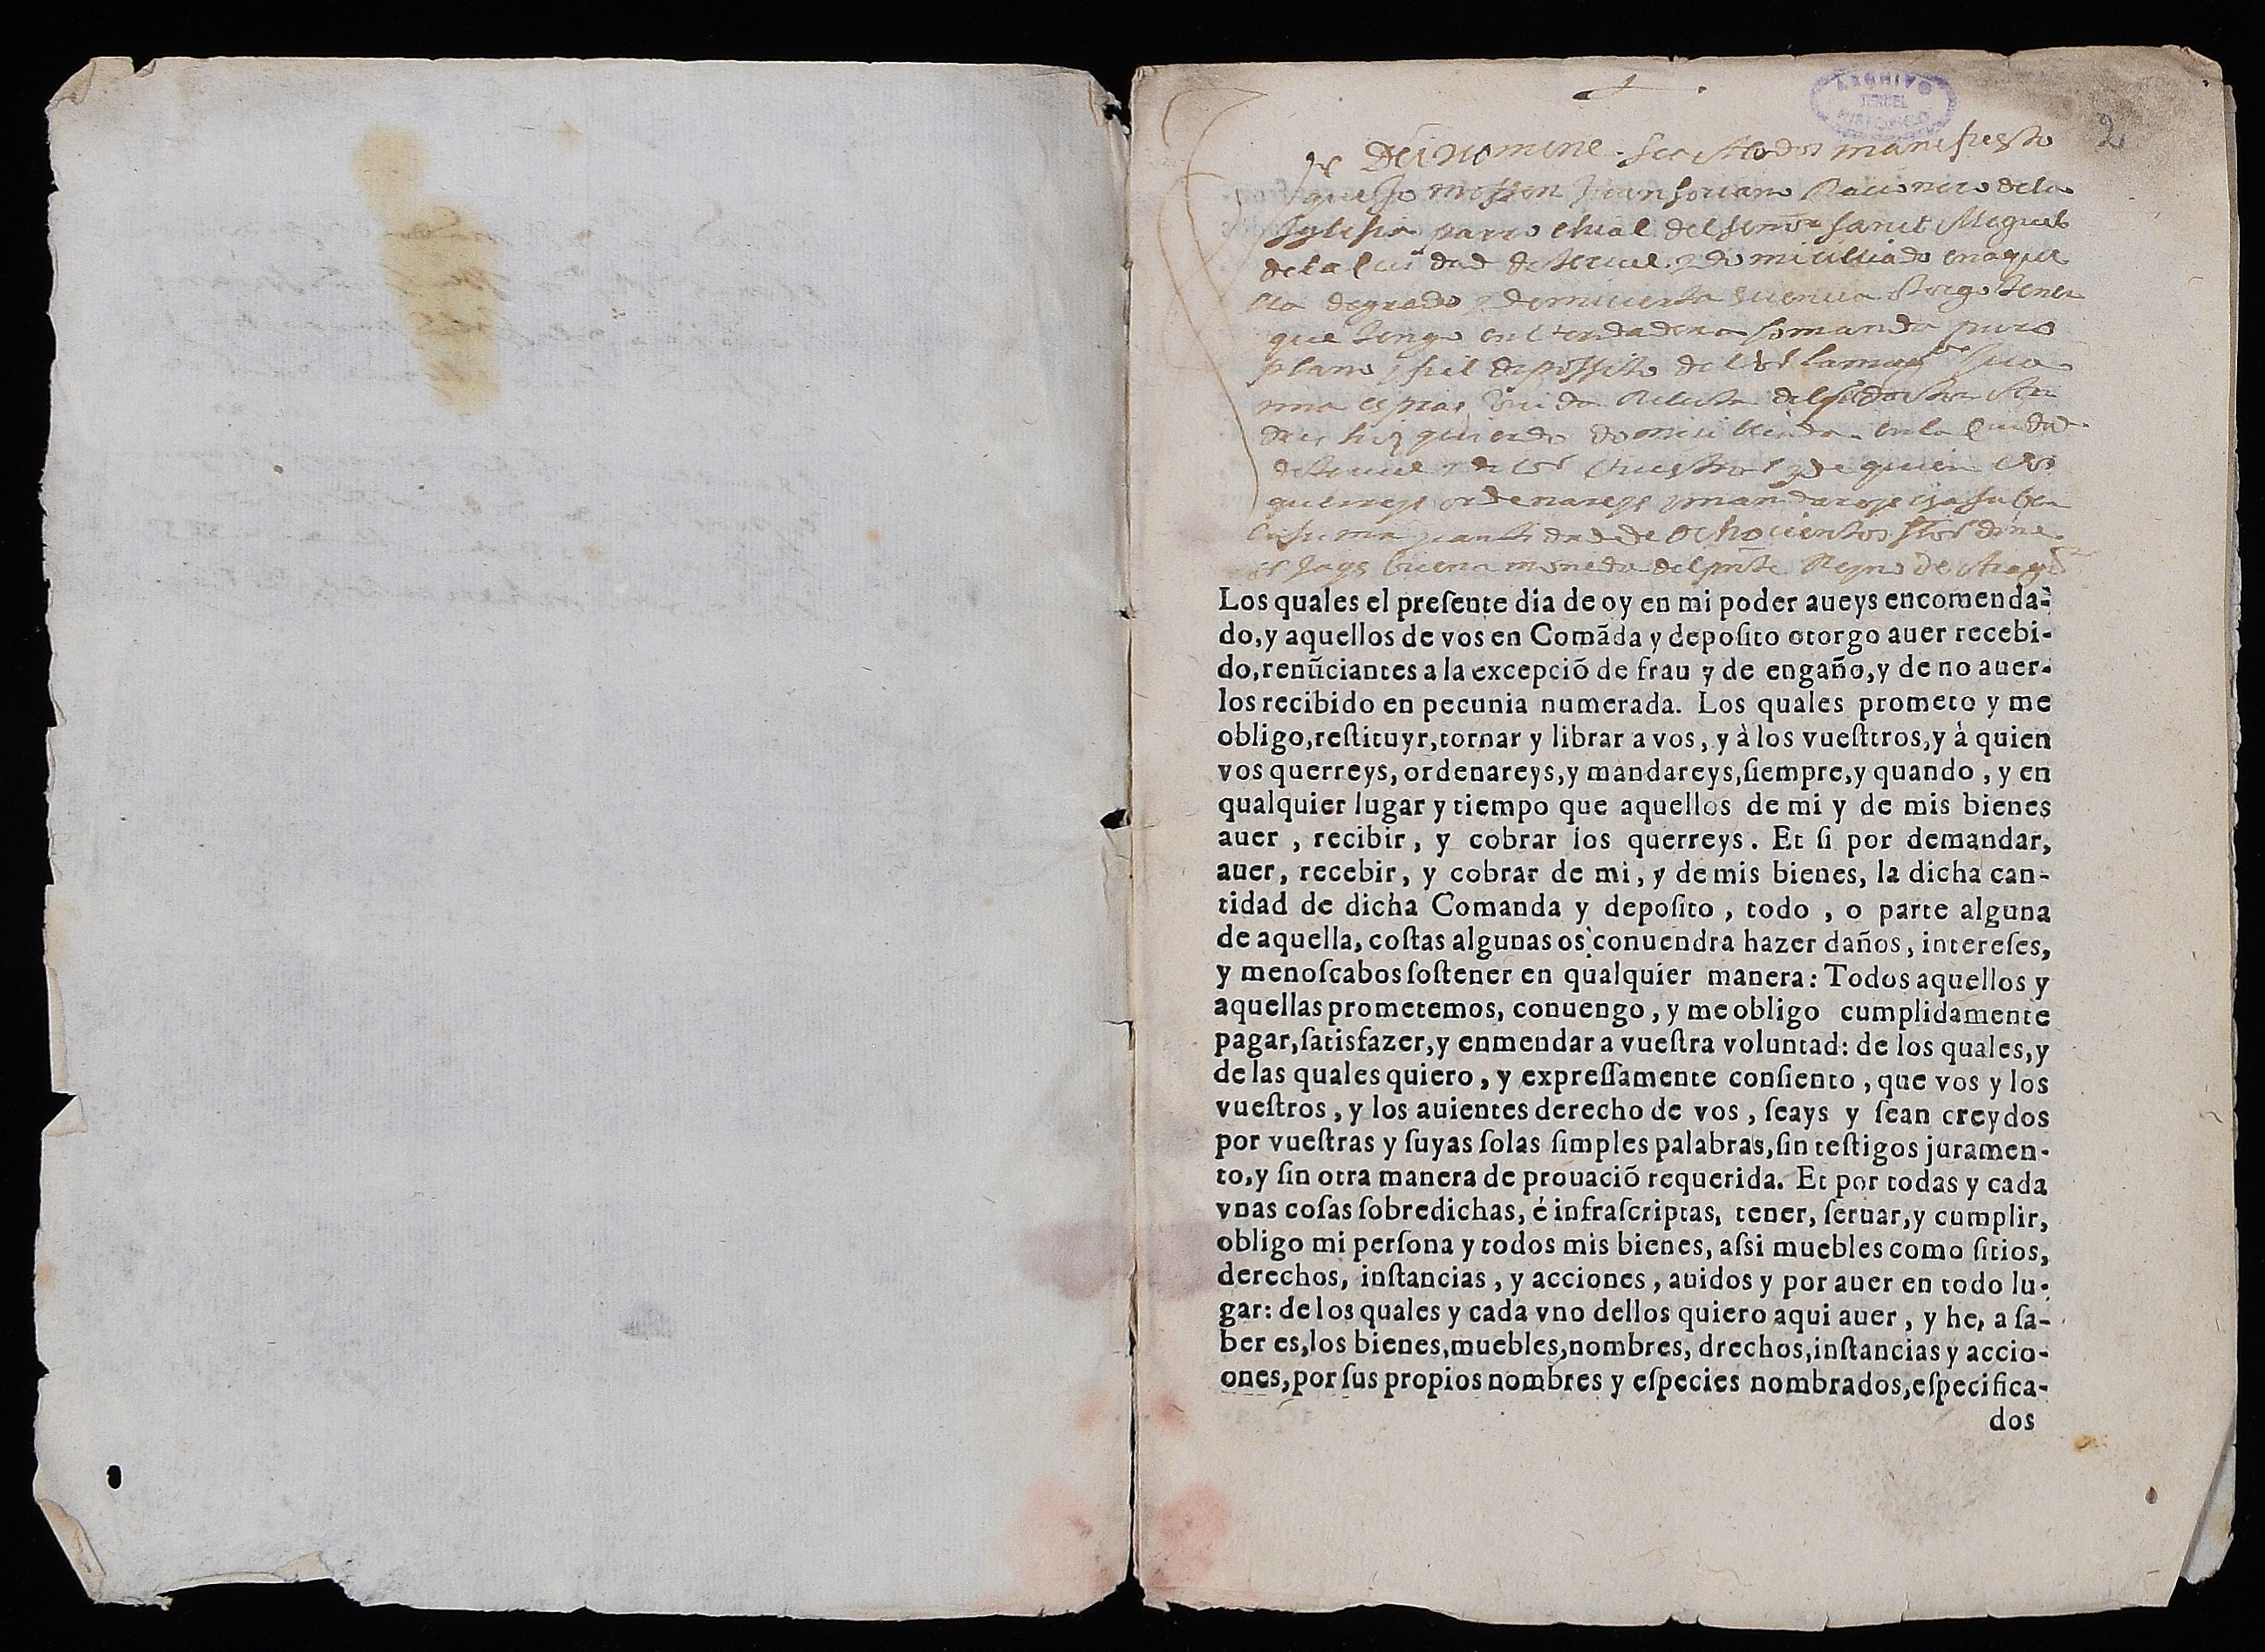 ARCHIVO
TERUEL
HISTORICO
2
Dei nomine. Sea a todos manifiesto
que yo mossen Juan Soriano Racionero de la
Iglesia parrochial del señor Sanct Miguel
de la Ciudad de Teruel y domiciliado en aque
lla de grado y de mi cierta sciencia otorgo tener
que tengo en verdadera Comanda puro
plano y fiel deposito de vos la
domiciliada en la Ciudad
de Teruel y de los vuestros y de quien vos
querreys ordenareys y mandareys es a saber
la suma y cantidad de ochocientos sueldos dine
buena moneda del pnte Reyno de Aragon
Los quales el preſente dia de oy en mi poder aueys encomenda-
do, y aquellos de vos en Comãda y depoſito otorgo auer recebi-
do, renũciantes a la excepciõ de frau y de engaño, y de no auer-
los recibido en pecunia numerada. Los quales prometo y me
obligo, reſtituyr, tornar y librar a vos, y à los vueſttros, y à quien
vos querreys, ordenareys, y mandareys, ſiempre, y quando, y en
qualquier lugar y tiempo que aquellos de mi y de mis bienes
auer, recibir, y cobrar los querreys. Et ſi por demandar,
auer, recebir, y cobrar de mi, y de mis bienes, la dicha can-
tidad de dicha Comanda y depoſito, todo, o parte alguna
de aquella, coſtas algunas os conuendra hazer daños, intereſes,
y menoſcabos ſoſtener en qualquier manera: Todos aquellos y
aquellas prometemos, conuengo, y me obligo cumplidamente
pagar, ſatisfazer, y enmendar a vueſtra voluntad: de los quales, y
de las quales quiero, y expreſſamente conſiento, que vos y los
vueſtros, y los auientes derecho de vos, ſeays y ſean creydos
por vueſtras y ſuyas ſolas ſimples palabras, ſin teſtigos juramen-
to, y ſin otra manera de prouaciõ requerida. Et por todas y cada
vnas coſas ſobredichas, è infraſcriptas, tener, ſeruar, y cumplir,
obligo mi perſona y todos mis bienes, aſsi muebles como ſitios,
derechos, inſtancias, y acciones, auidos y por auer en todo lu-
gar: de los quales y cada vno dellos quiero aqui auer, y he, a ſa-
ber es, los bienes, muebles, nombres, drechos, inſtancias y accio-
ones, por ſus propios nombres y eſpecies nombrados, eſpecifica-
dos